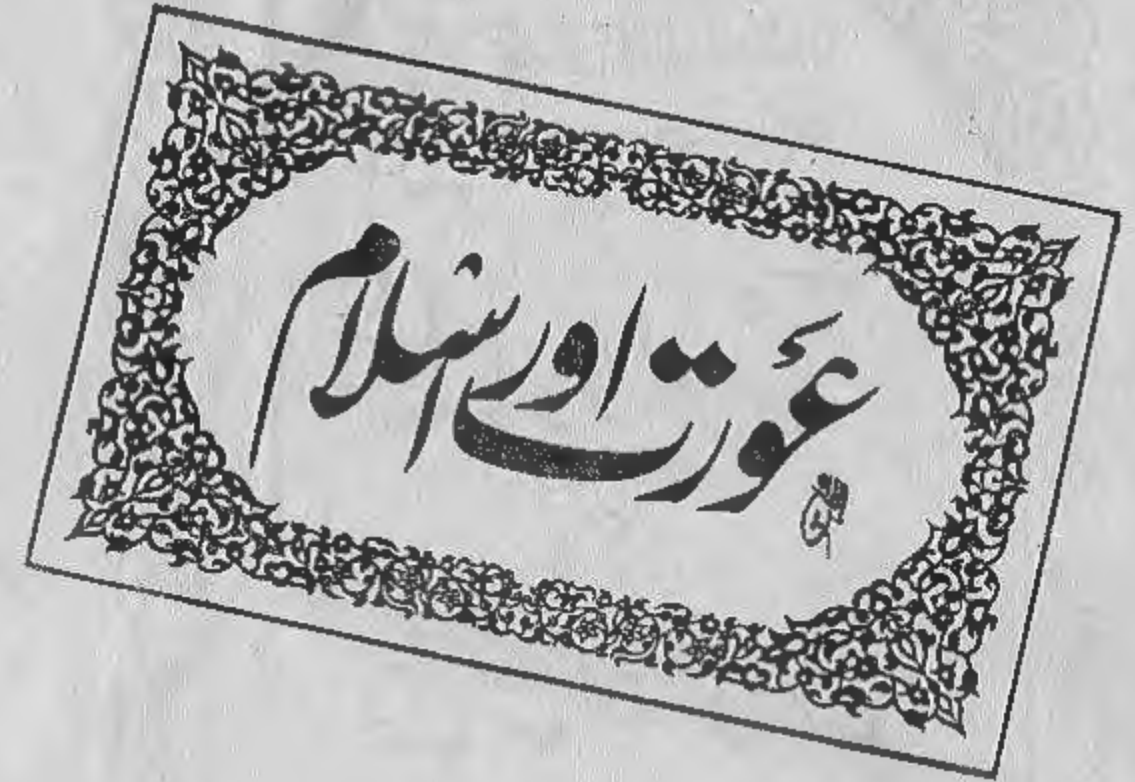 عورت اور اسلام